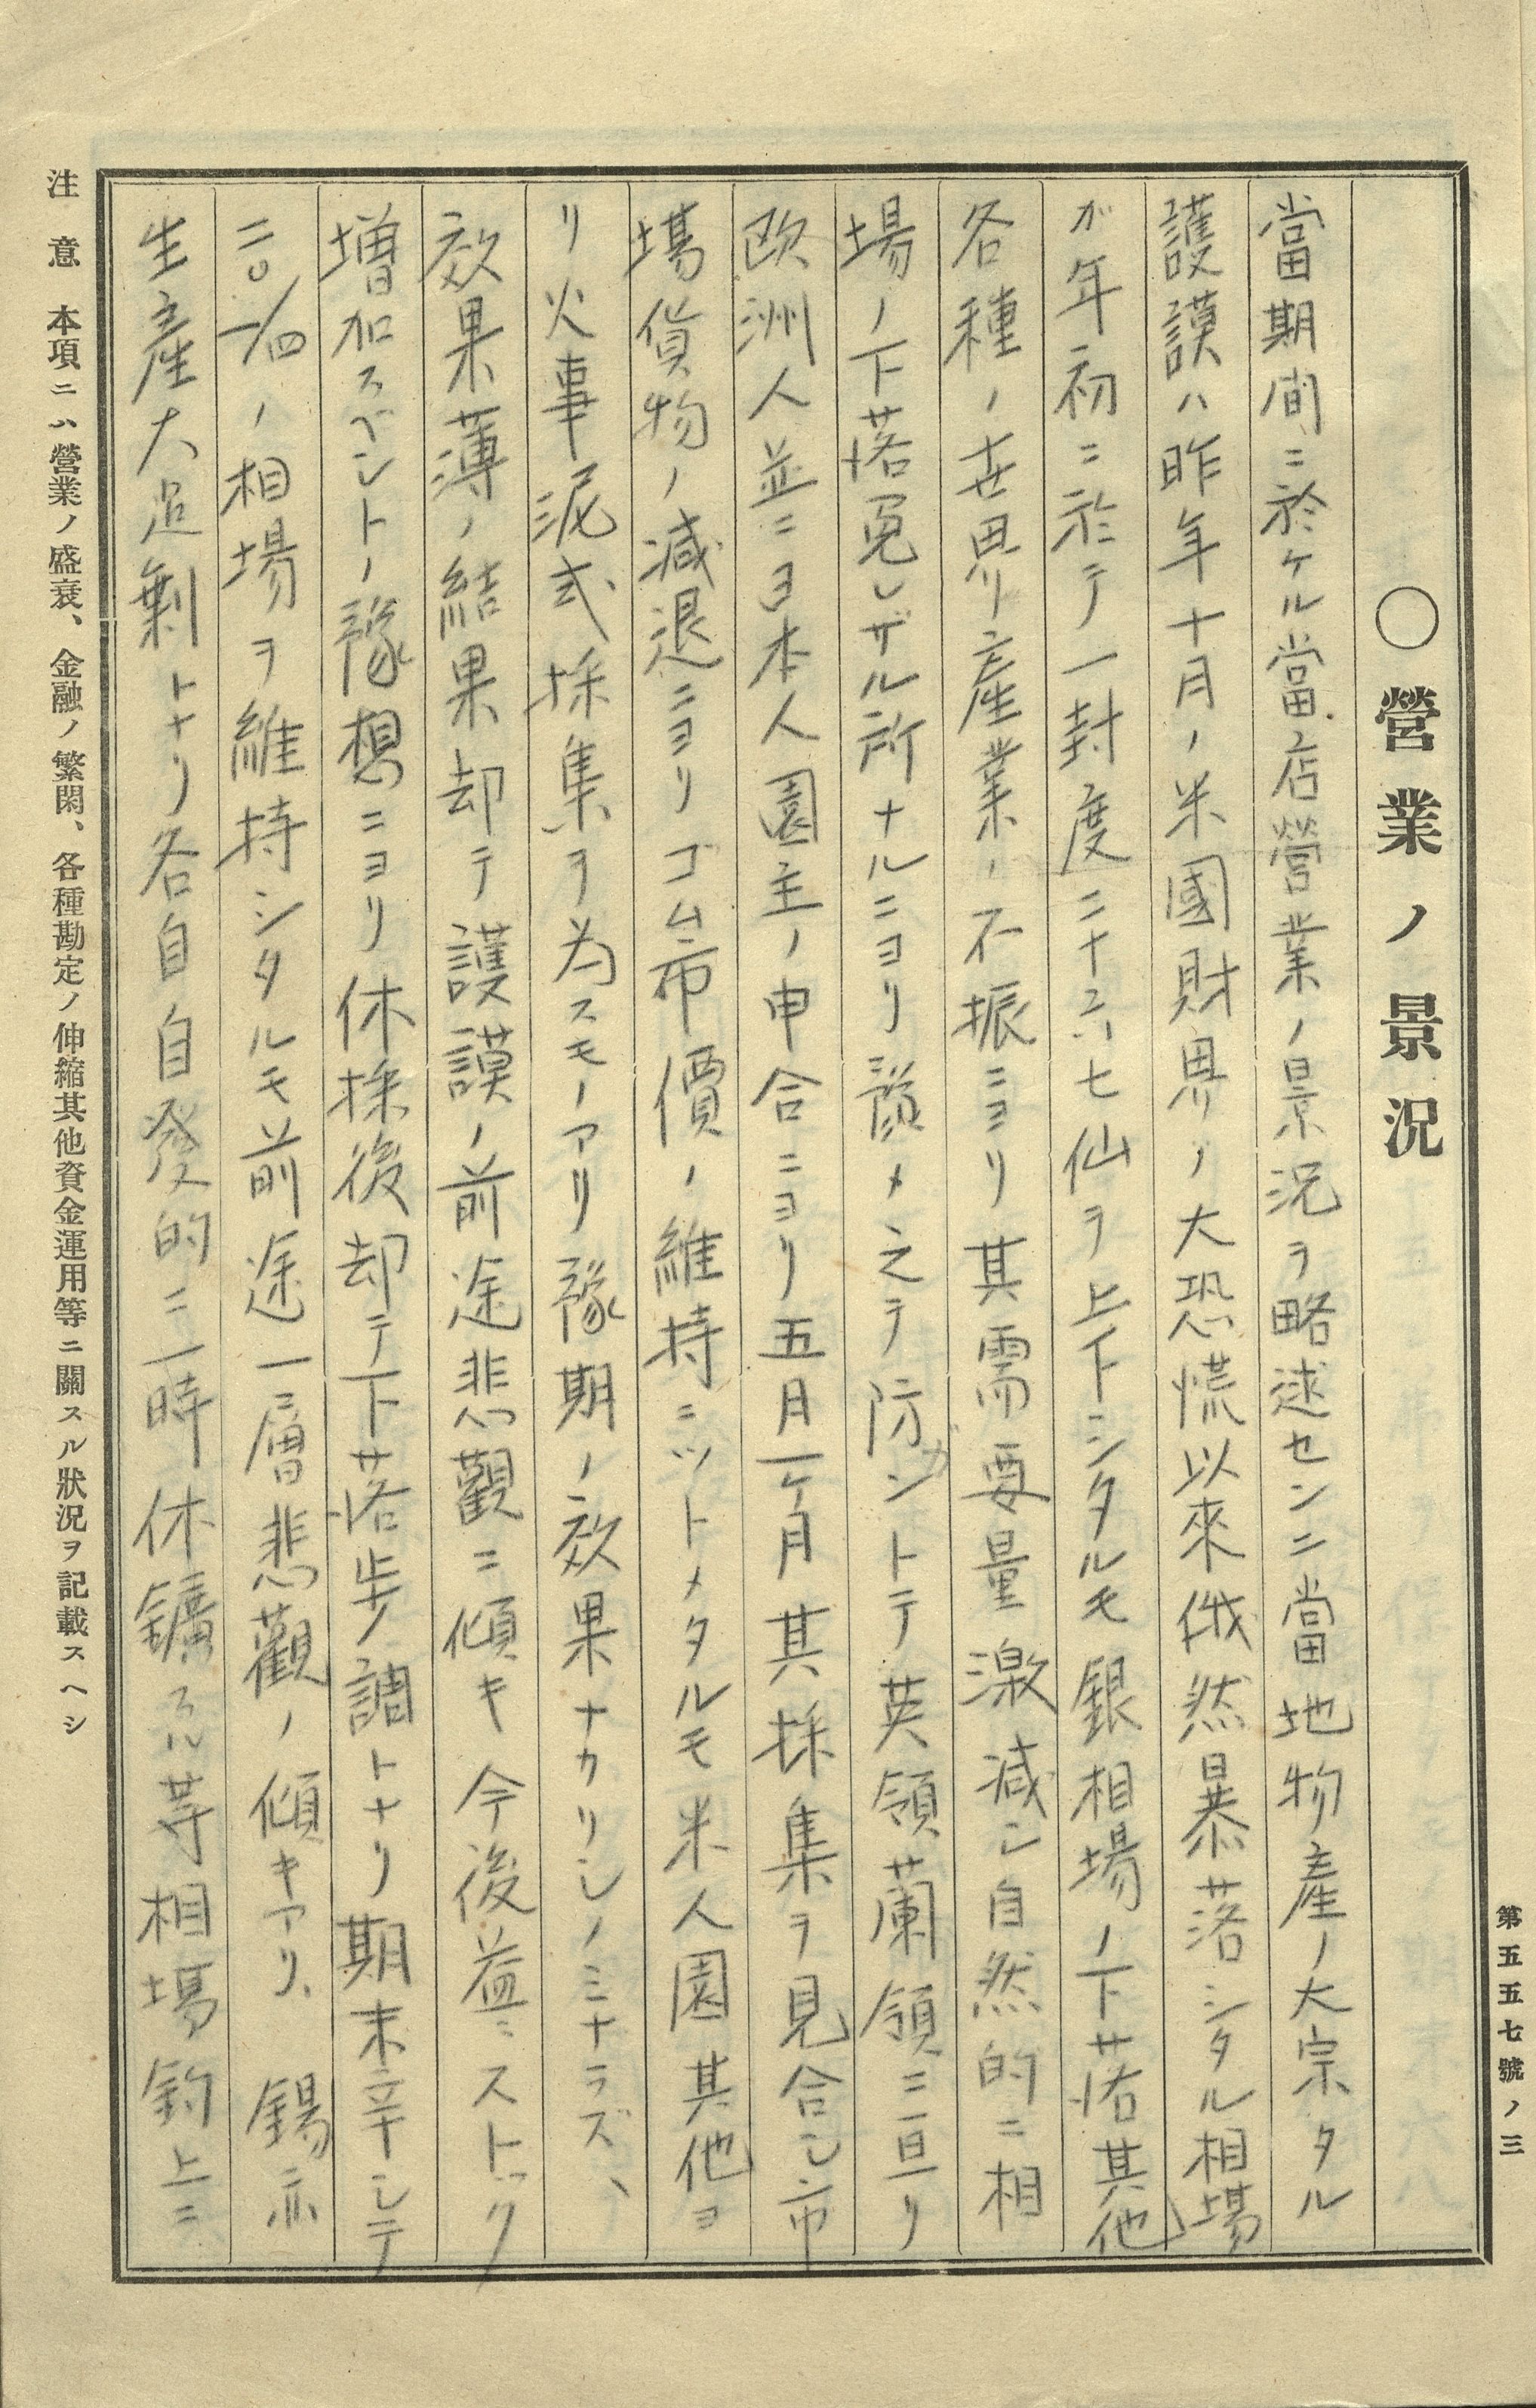 第五五七號ノ三
〇營業ノ景況
當期間ニ於ケル當店營業ノ景況ヲ略述センニ當地物產ノ大宗タル
護謨ハ昨年十月ノ米國財界ノ大恐慌以來俄然暴落シタル相場
ガ年初ニ於テ一封度二十六七仙ヲ上下シタルモ銀相場ノ下落其他
各種ノ世界産業ノ不振ニヨリ其需要量激減シ自然的ニ相
場ノ下落免レザル所ナルニヨリ豫メ之テ防ガントテ英領蘭領ニ亘リ
欧洲人並ニ日本人園主ノ申合ニヨリ五月一ケ月其採集ヲ見合シ市
場貨物ノ減退ニヨリゴム市價ノ維持ニツトメタルモ米人園其他ヨ
リ火事泥式採集ヲ為スモノアリ豫期ノ效果ナカリシノミナラズ、
效果薄ノ結果却テ護謨ノ前途悲觀ニ傾キ 今後益々ストック
増加スベシトノ豫想ニヨリ休採後却テ下落歩調トナリ期末辛シテ
二〇一/四ノ相場ヲ維持シタルモ前途一層悲觀ノ傾キアリ、 錫亦
生產大過剩トナリ各自自發的ニ一時休鑛等相場釣上ニ
注意 本項ニハ營業ノ盛衰、金融ノ繁閑、各種勘定ノ伸縮其他資金運用等ニ關スル狀況ヲ記載スヘシ